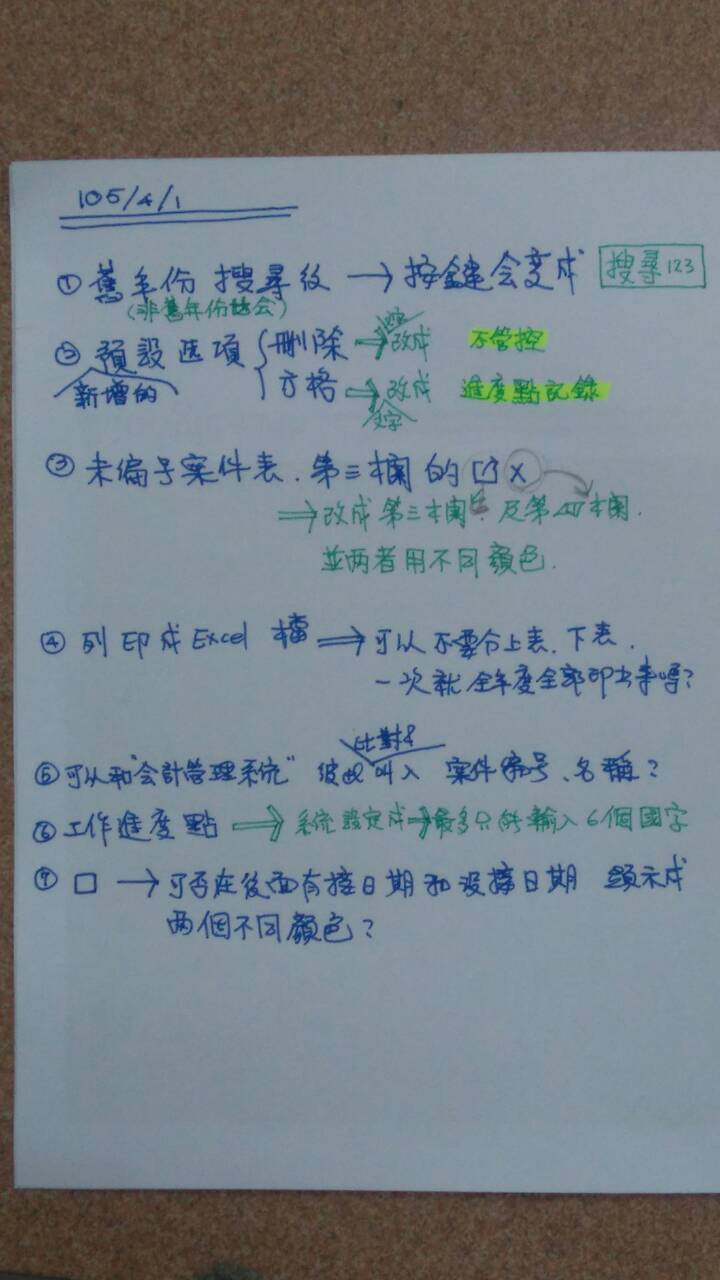 105/4/1
① 舊年份 搜尋後 → 按鍵會变成 搜尋123
(非舊年份也会)
② 預設選項 { 刪除 ⇒ 文字 改成 不管控
新增的 方格 ⇒ 改成 進度點記錄
文字
③ 未编号案件表、第三欄的 X
⇒ 改成第三欄 及第四欄.
並两者用不同顏色.
④ 列印成Excel 檔 ⇒ 可以不要分上表、下表、
一次就全年度全部印出來嗎?
比對
⑤ 可以和"会計管理系統" 彼此叫入 案件编号、名稱?
⑥ 工作進度點 ⇒ 系統設定成→最多只能輸入6個國字
⑦ □ → 可否在後面有接日期和沒接日期 顯示成
两個不同顏色?